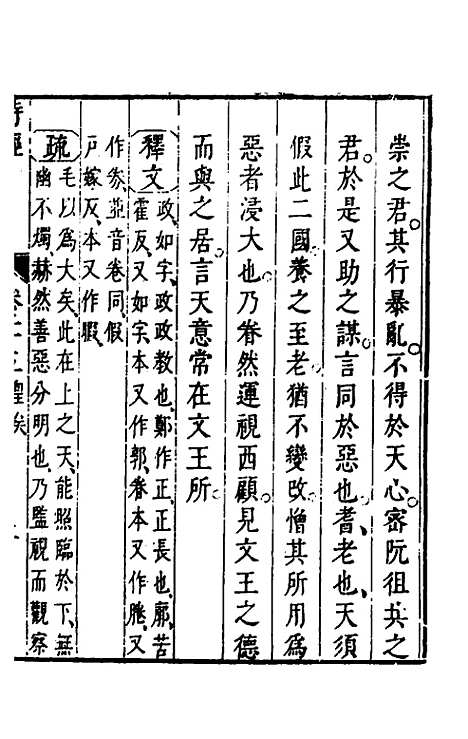 崇之君其行暴亂。不得於天心。密阮徂共之
君。於是又助之謀。言同於惡也。耆、老也、天須
假此二國。養之至老。猶不變改。憎其所用為
惡者浸大也。乃眷然運視西顧。見文王之德
而與之居。言天意常在文王所。
釋文 政、如字、政政教也、鄭作正、正長也、廓、苦
霍反、又如字、本又作郭、眷本又作睠、又
作𢍏、並音卷同、假
戶嫁反、本又作暇
疏 毛以為大矣、此在上之天、能照臨於下、無
幽不燭、赫然善惡分明也、乃監視而觀察
詩經 卷二十三 皇矣